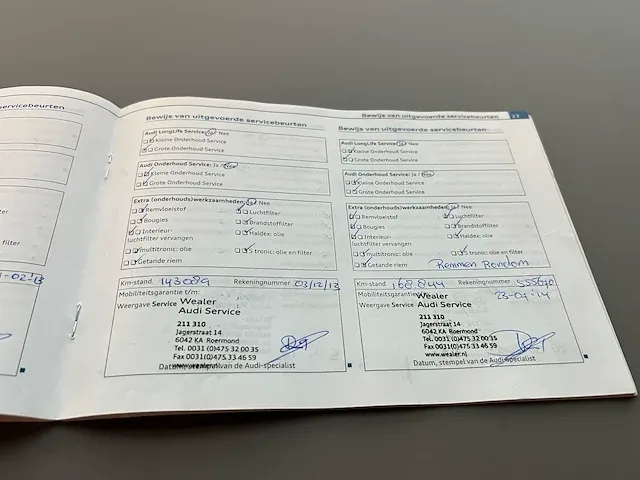 servicebeurten
Bewijs van uitgevoerde servicebeurten
Audi LongLife Service: Ja / Nee
Kleine Onderhoud Service
Grote Onderhoud Service
Audi Onderhoud Service: Ja / Nee
Kleine Onderhoud Service
Grote Onderhoud Service
Extra (onderhouds)werkzaamheden: Ja / Nee
Remvloeistof Luchtfilter
Bougies Brandstoffilter
Interieur- Haldex: olie
luchtfilter vervangen
multitronic: olie S tronic: olie en filter
Getande riem
Km-stand 143089 Rekeningnummer 03/12/13
Mobiliteitsgarantie t/m:
Weergave Service Wealer
Audi Service
211 310
Jagerstraat 14
6042 KA Roermond
Tel. 0031 (0)475 32 00 35
Fax 0031 (0)475 33 46 59
www.wealer.nl
Datum, stempel van de Audi-specialist
Bewijs van uitgevoerde servicebeurten 23
Bewijs van uitgevoerde servicebeurten
Audi LongLife Service: Ja / Nee
Kleine Onderhoud Service
Grote Onderhoud Service
Audi Onderhoud Service: Ja / Nee
Kleine Onderhoud Service
Grote Onderhoud Service
Extra (onderhouds)werkzaamheden: Ja / Nee
Remvloeistof Luchtfilter
Bougies Brandstoffilter
Interieur- Haldex: olie
luchtfilter vervangen
multitronic: olie S tronic: olie en filter
Getande riem Remmen Rondom
Km-stand 168844 Rekeningnummer
Mobiliteitsgarantie Wealer
Weergave Service Audi Service
211 310
Jagerstraat 14
6042 KA Roermond
Tel. 0031 (0)475 32 00 35
Fax 0031 (0)475 33 46 59
www.wealer.nl
Datum, stempel van de Audi-specialist